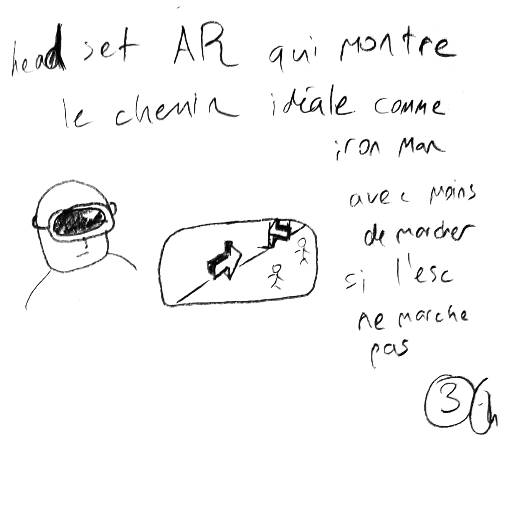 head set AR qui montre
le chemin idéale comme
iron man
avec moins
de marcher
si l'esc
ne marche
pas
3